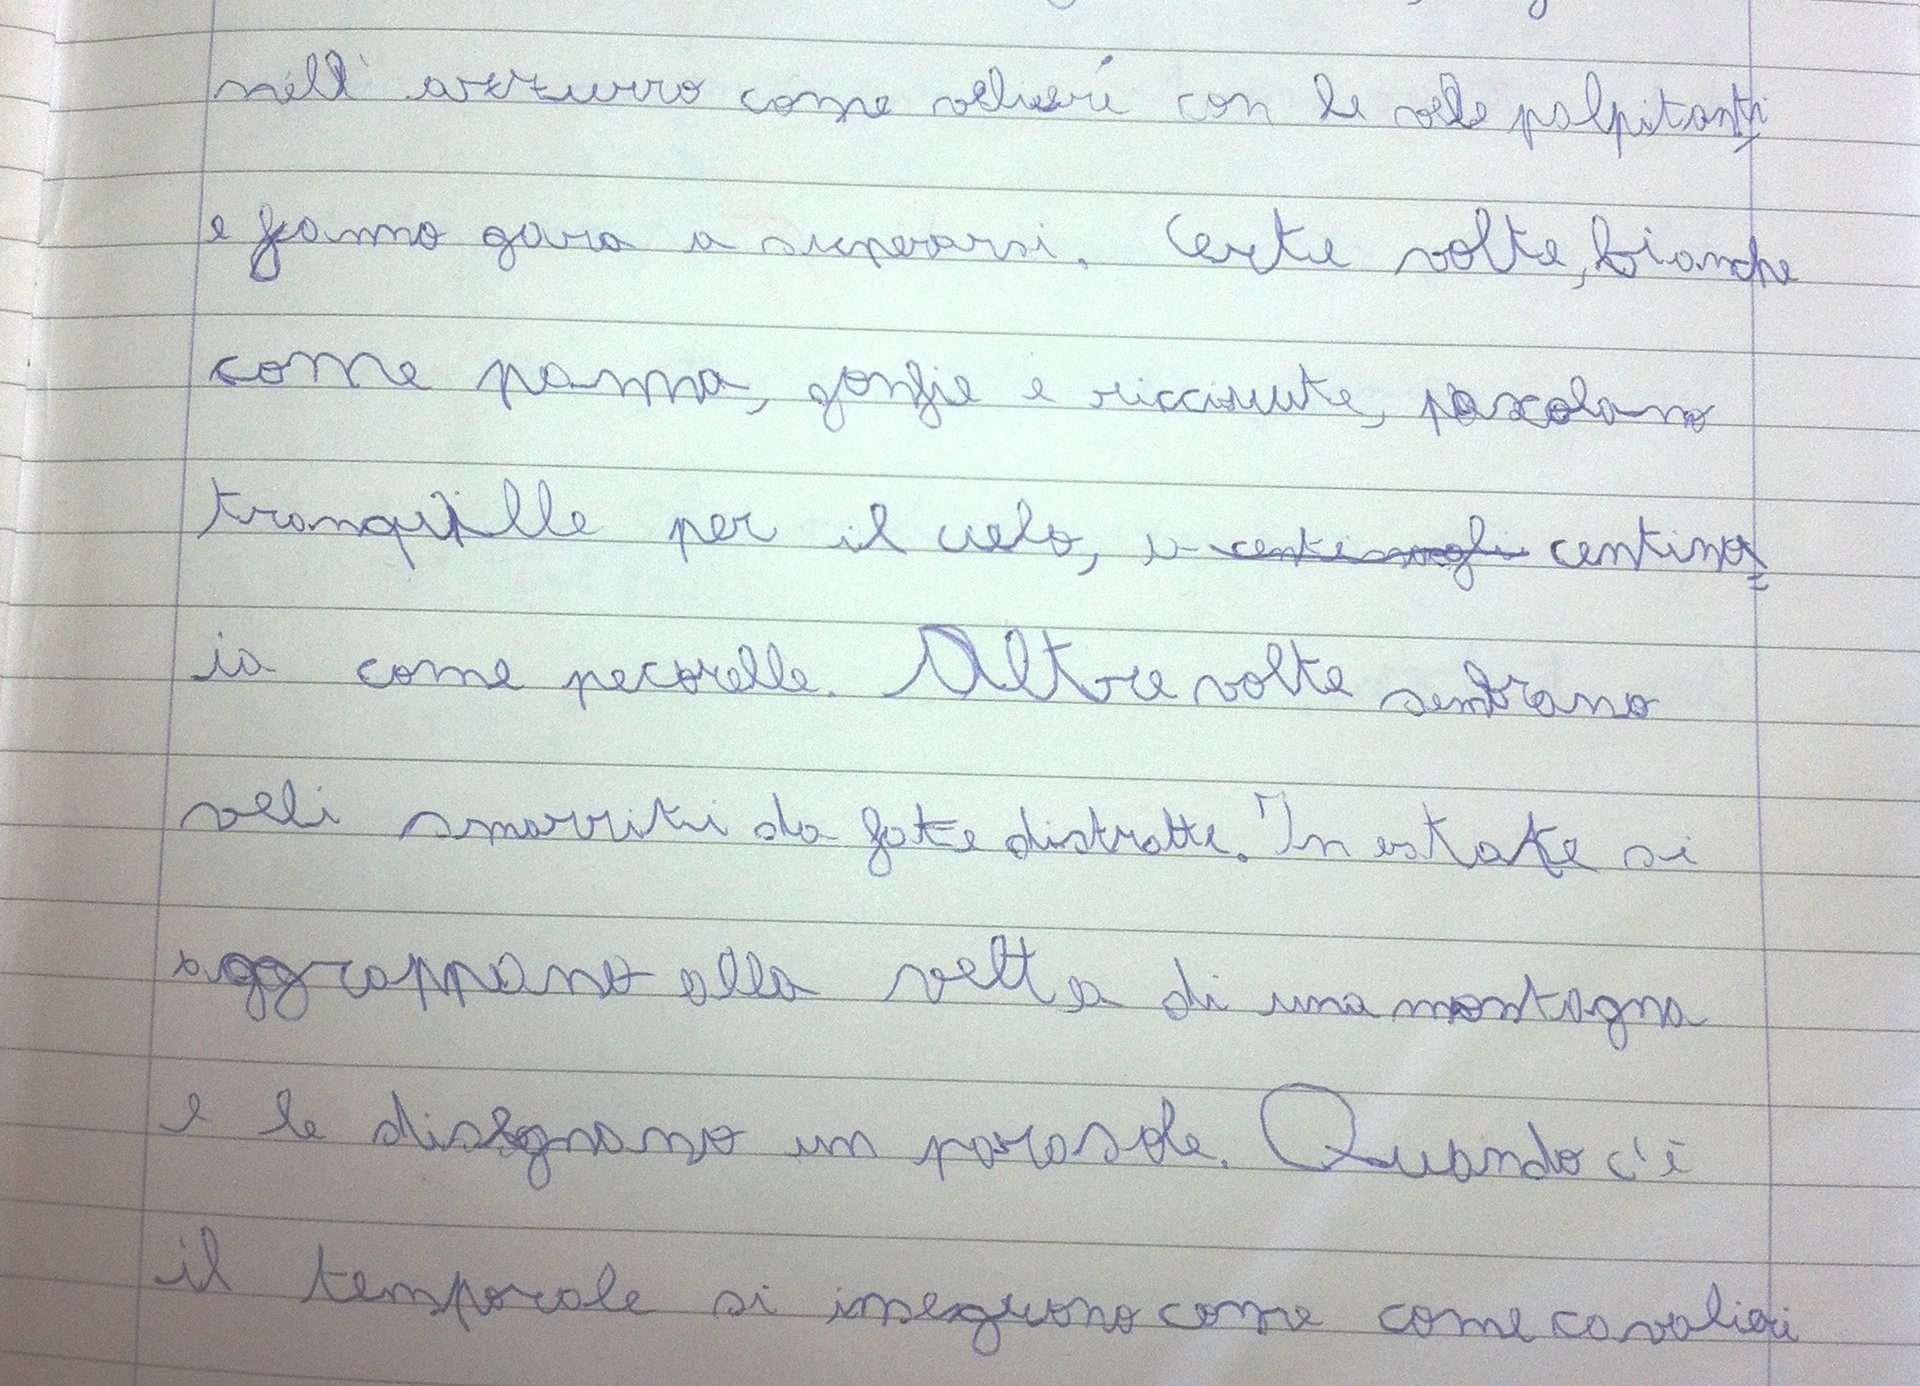 nell' azzurro come velieri con le vele palpitanti
e fanno gara a superarsi. Certe volte, bianche
come panna, gonfie e ricciute, pascolano
tranquille per il cielo, a centinaglia centina=
ia come pecorelle. Altre volte sembrano
veli smarriti da fate distratte. In estate si
aggrappano alla vetta di una montagna
e le disegnano un parasole. Quando c'è
il temporale si inseguono come come cavalieri